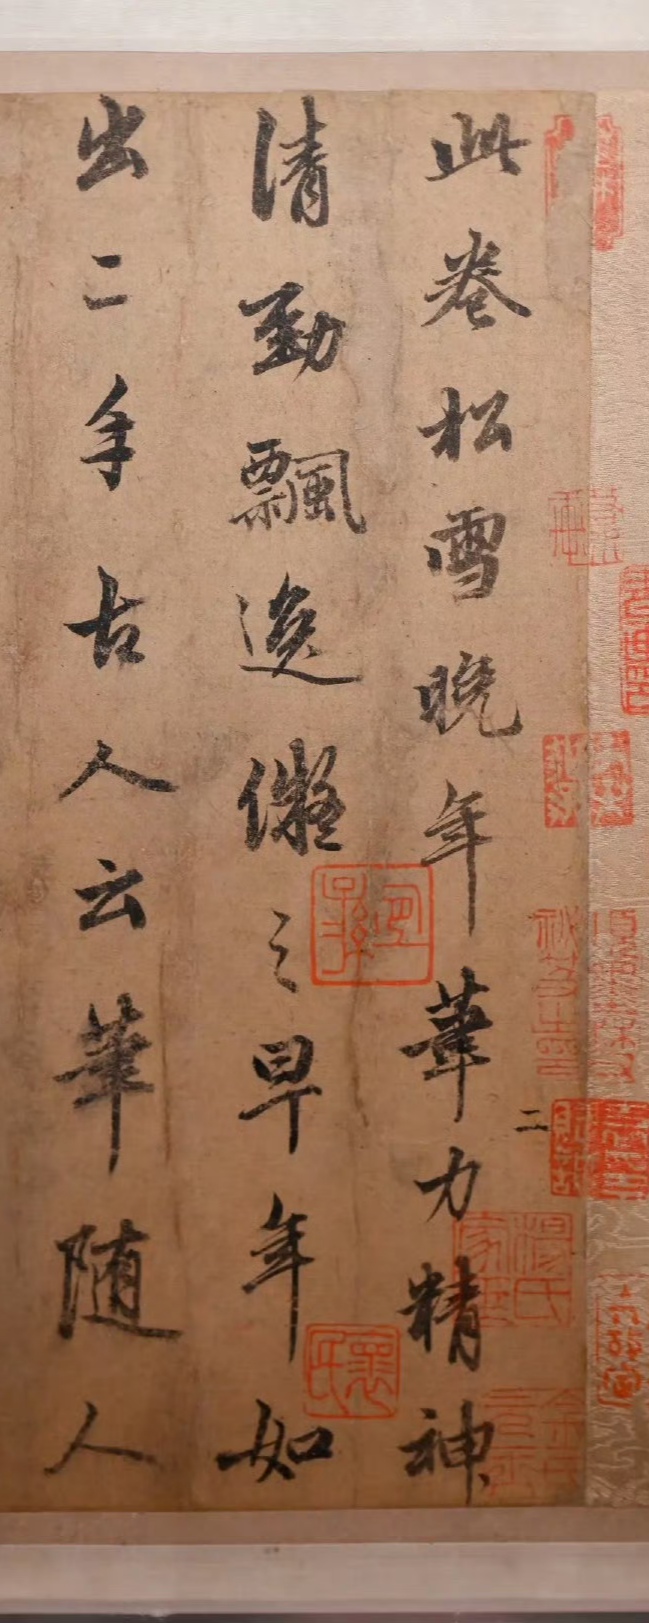 此卷松雪晚年筆力精神
清勁飄逸儗之早年如
出二手古人云筆随人
二